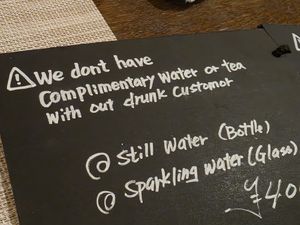 ⚠ We dont have
Complimentary Water or tea
With out drunk Customer
@ Still Water (Bottle)
@ Sparkling water (Glass)
¥40